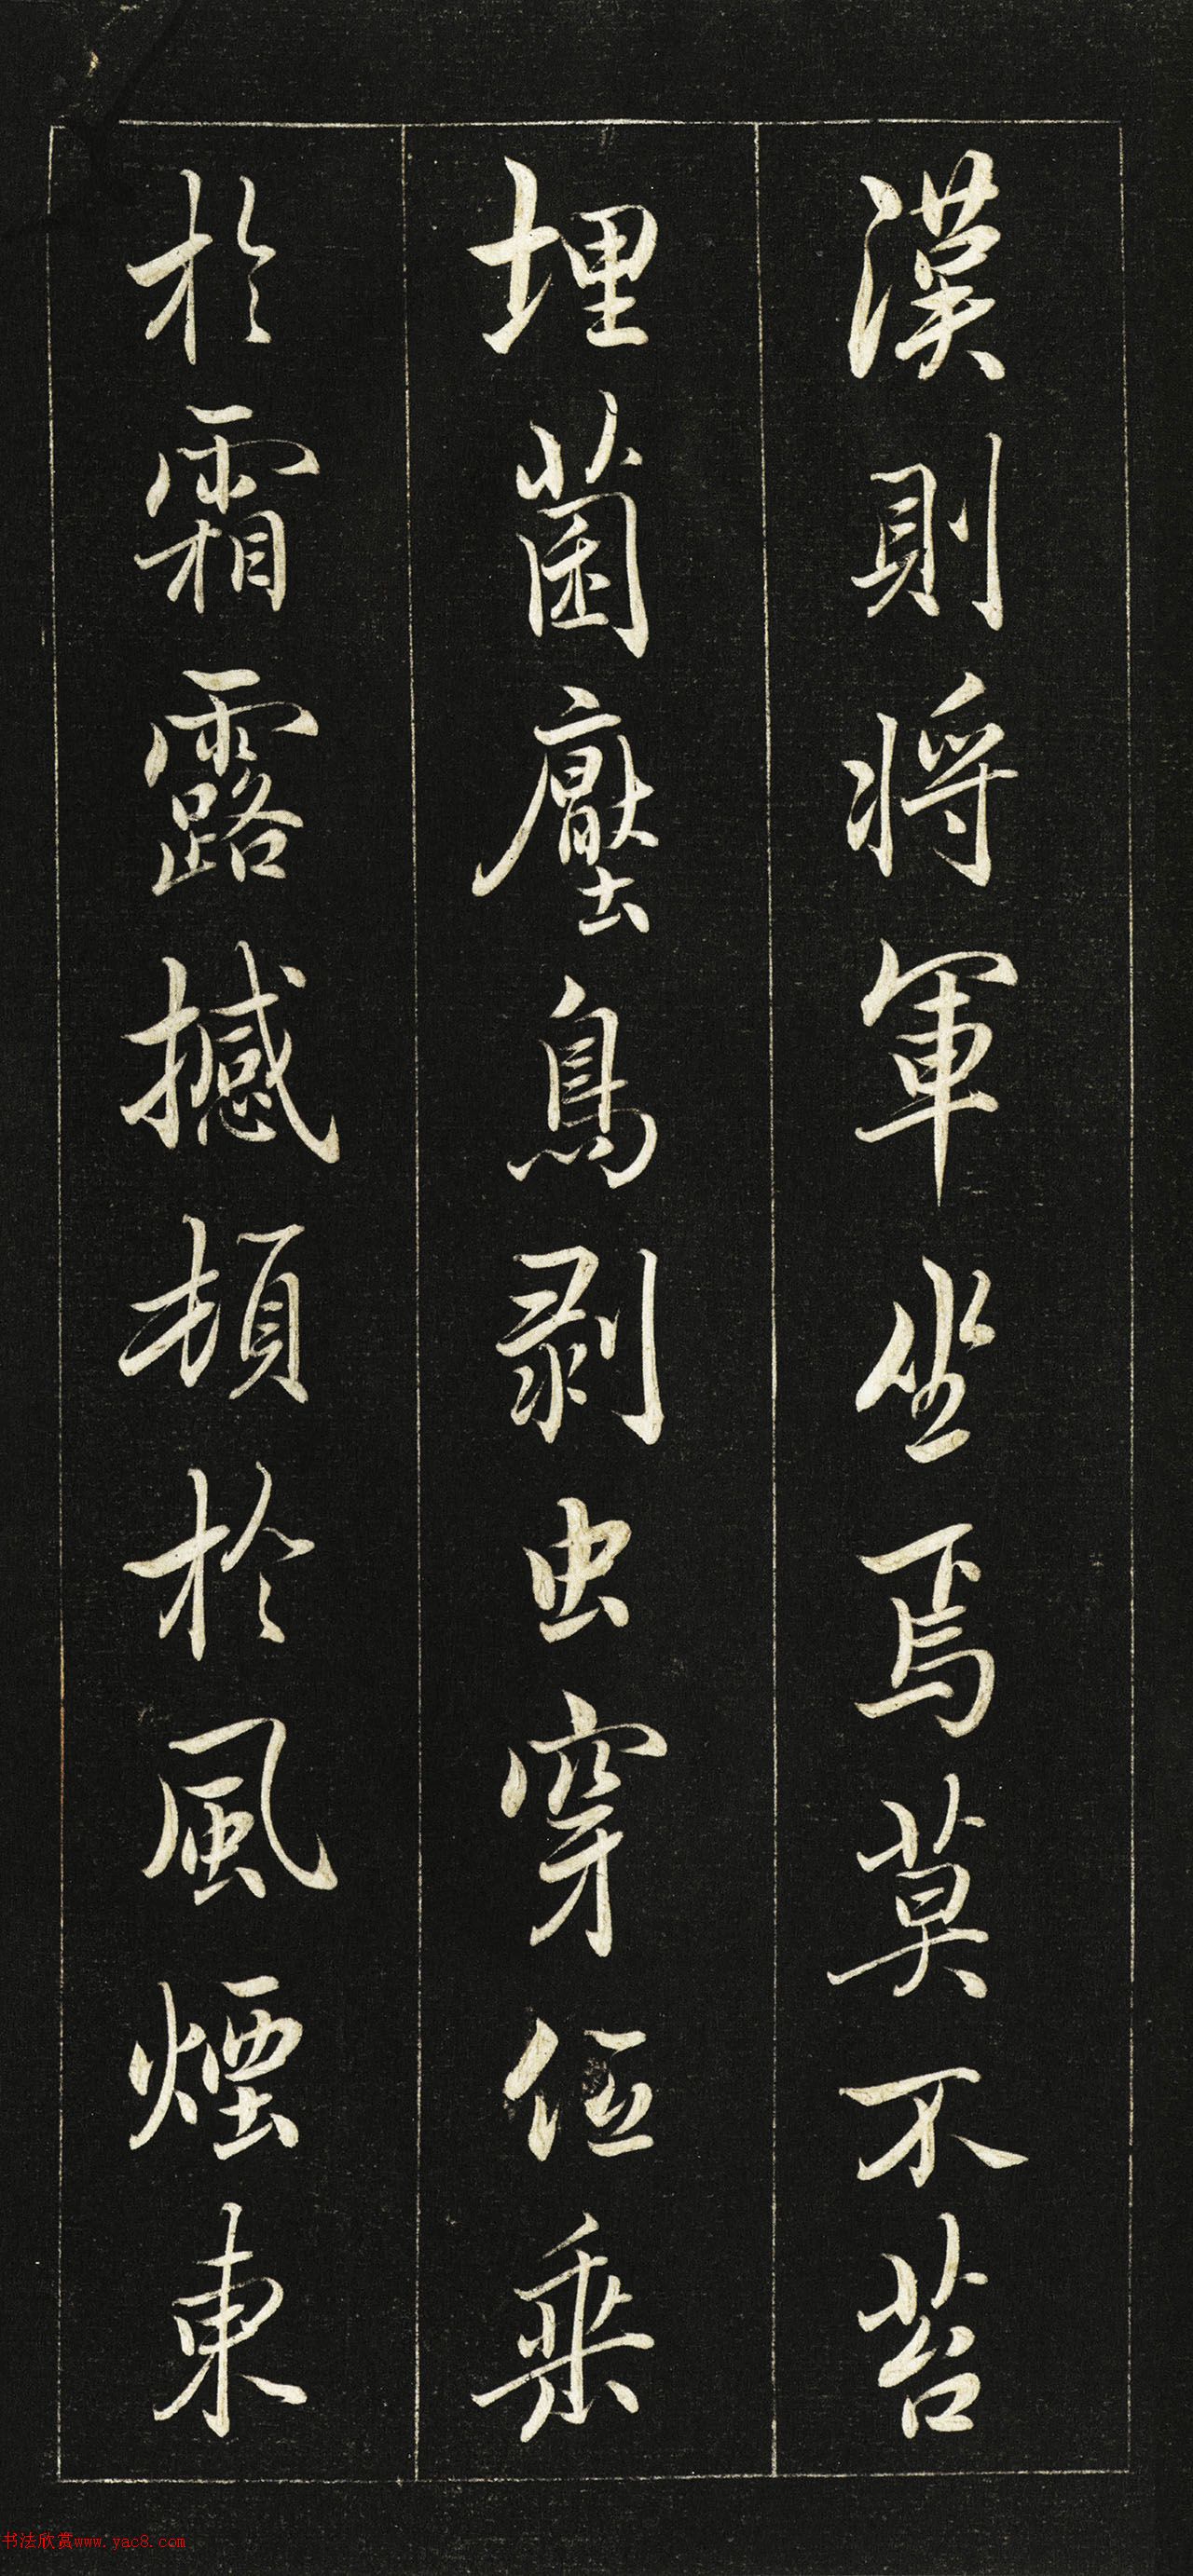 漢則将軍坐焉莫不苔
埋菌壓鳥剥虫穿低垂
於霜露撼頓於風煙東
书法欣赏www.yac8.com